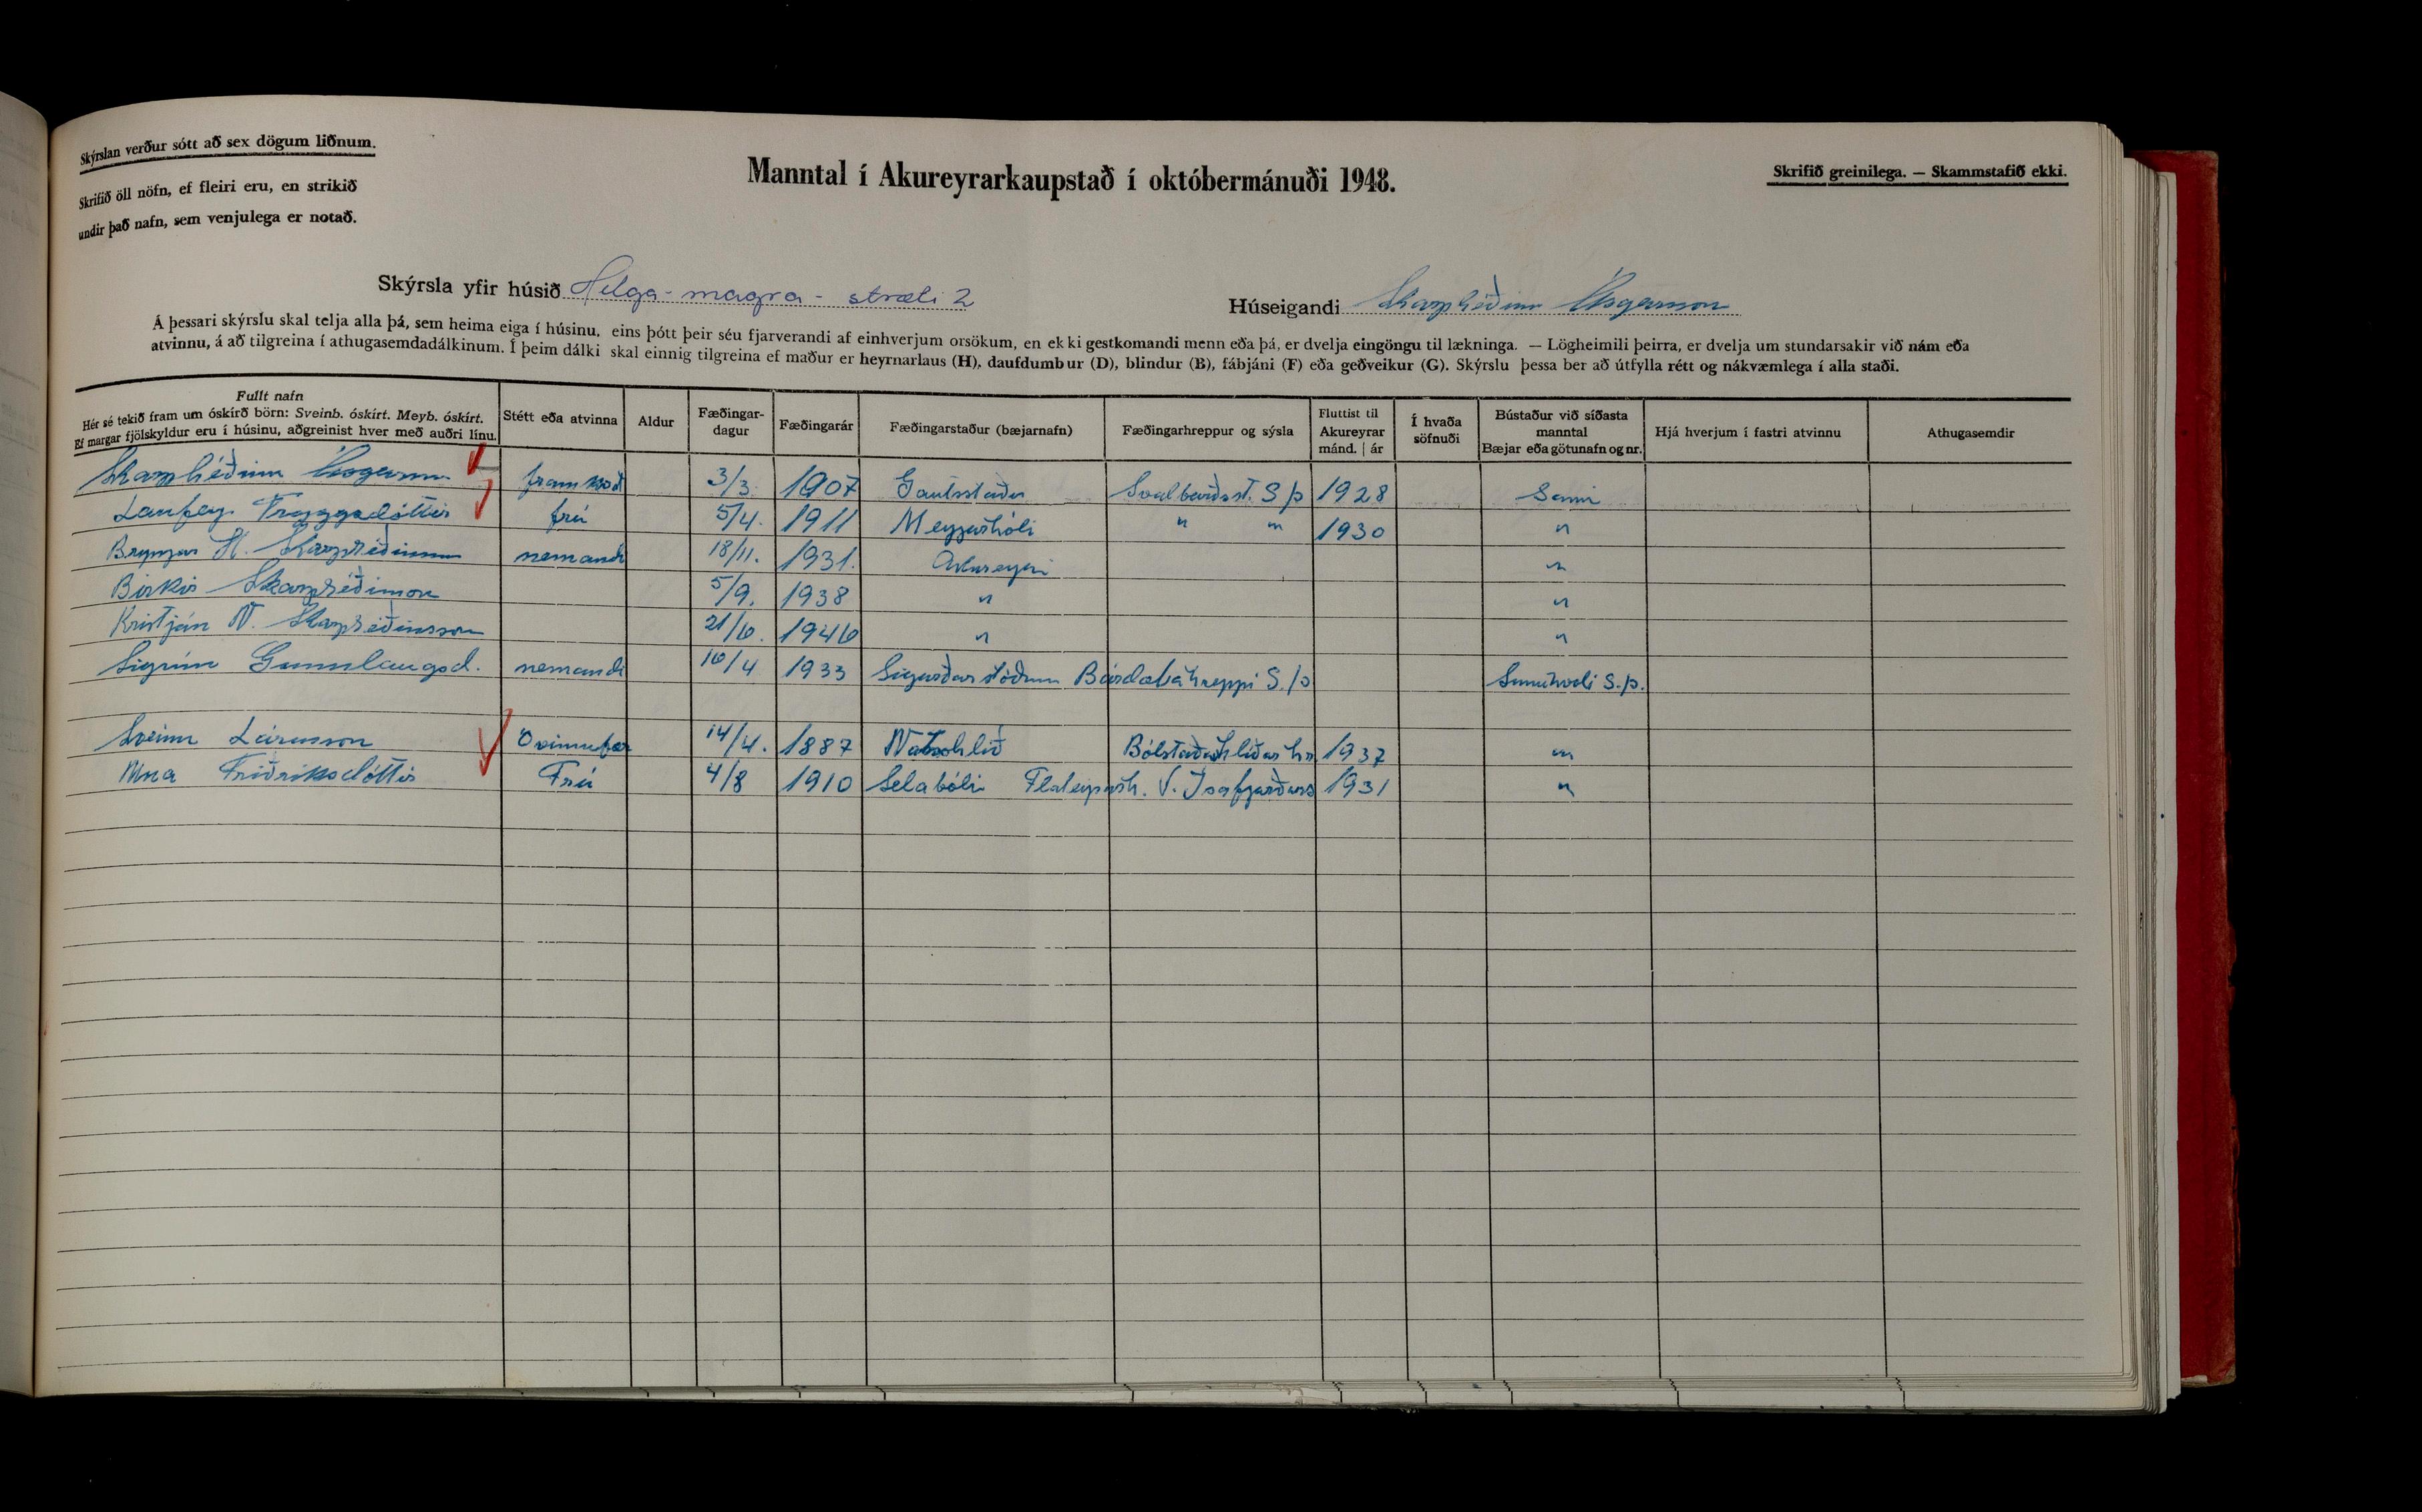 Skýrslan verður sótt að sex dögum liðnum.
Skrifið öll nöfn, ef fleiri eru, en strikið
undir það nafn, sem venjulega er notað.
Manntal í Akureyrarkaupstað í októbermánuði 1948.
Skrifið greinilega. — Skammstafið ekki.
Skýrsla yfir húsið Helga-magra-stræti 2
Húseigandi Skarphéðinn Ásgeirsson
Á þessari skýrslu skal telja alla þá, sem heima eiga í húsinu, eins þótt þeir séu fjarverandi af einhverjum orsökum, en ekki gestkomandi menn eða þá, er dvelja eingöngu til lækninga. — Lögheimili þeirra, er dvelja um stundarsakir við nám eða
atvinnu, á að tilgreina í athugasemdadálkinum. Í þeim dálki skal einnig tilgreina ef maður er heyrnarlaus (H), daufdumbur (D), blindur (B), fábjáni (F) eða geðveikur (G). Skýrslu þessa ber að útfylla rétt og nákvæmlega í alla staði.
Fullt nafn
Hér sé tekið fram um óskírð börn: Sveinb. óskírt. Meyb. óskírt.
Ef margar fjölskyldur eru í húsinu, aðgreinist hver með auðri línu.
Stétt eða atvinna
Aldur
Fæðingar-
dagur
Fæðingarár
Fæðingarstaður (bæjarnafn)
Fæðingarhreppur og sýsla
Fluttist til
Akureyrar
mánd. | ár
Í hvaða
söfnuði
Bústaður við síðasta
manntal
Bæjar eða götunafn og nr.
Hjá hverjum í fastri atvinnu
Athugasemdir
Skarphéðinn Ásgeirsson 3/3. 1907 Gautsstaðir Svalbarðsst. S þ 1928 Sami
Laufey Tryggvadóttir frú 5/4. 1911 Meyjarhóli " " 1930 "
Brynjar H. Skarphéðinsson nemandi 18/11. 1931. Akureyri "
Birkir Skarphéðinsson 5/9. 1938 " "
Kristján N. Skarphéðinsson 21/6. 1946 " "
Sigrún Gunnlaugsd. nemandi 16/4 1933 Sigurðarstöðum Bárðdælahreppi S.þ S.þ.
Sveinn Lárusson 14/4. 1887 Bólstaðarhlíðar hr 1937 "
Una Friðriksdóttir Frú 4/8 1910 Selabóli Flateyrarh. V. Ísafjarðars 1931 "